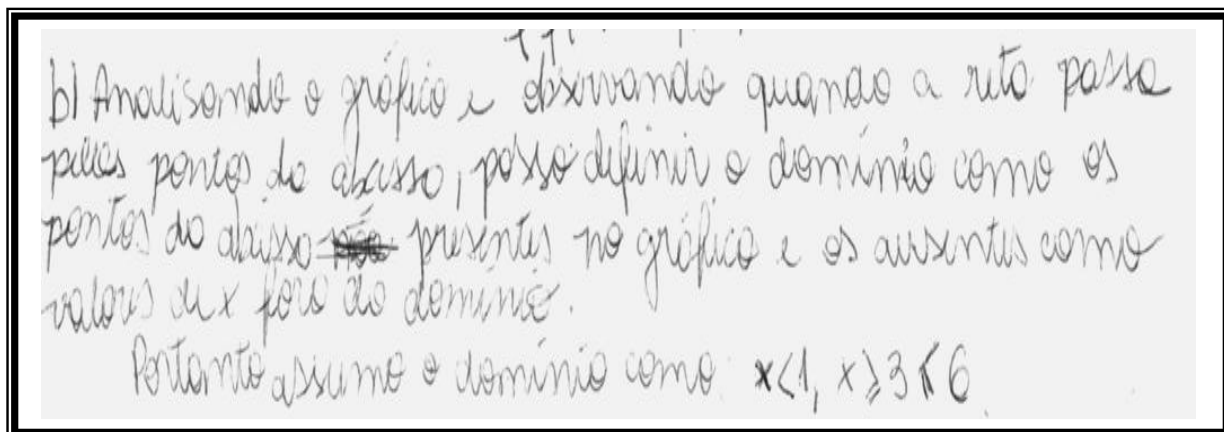 b) Analisando o gráfico e observando quando a reta passa
pelos pontos da abcissa, posso definir o domínio como os
pontos da abcissa presentes no gráfico e os ausentes como
valores de x fora do domínio.
Portanto assumo o domínio como x<1, x⩾3⩽6